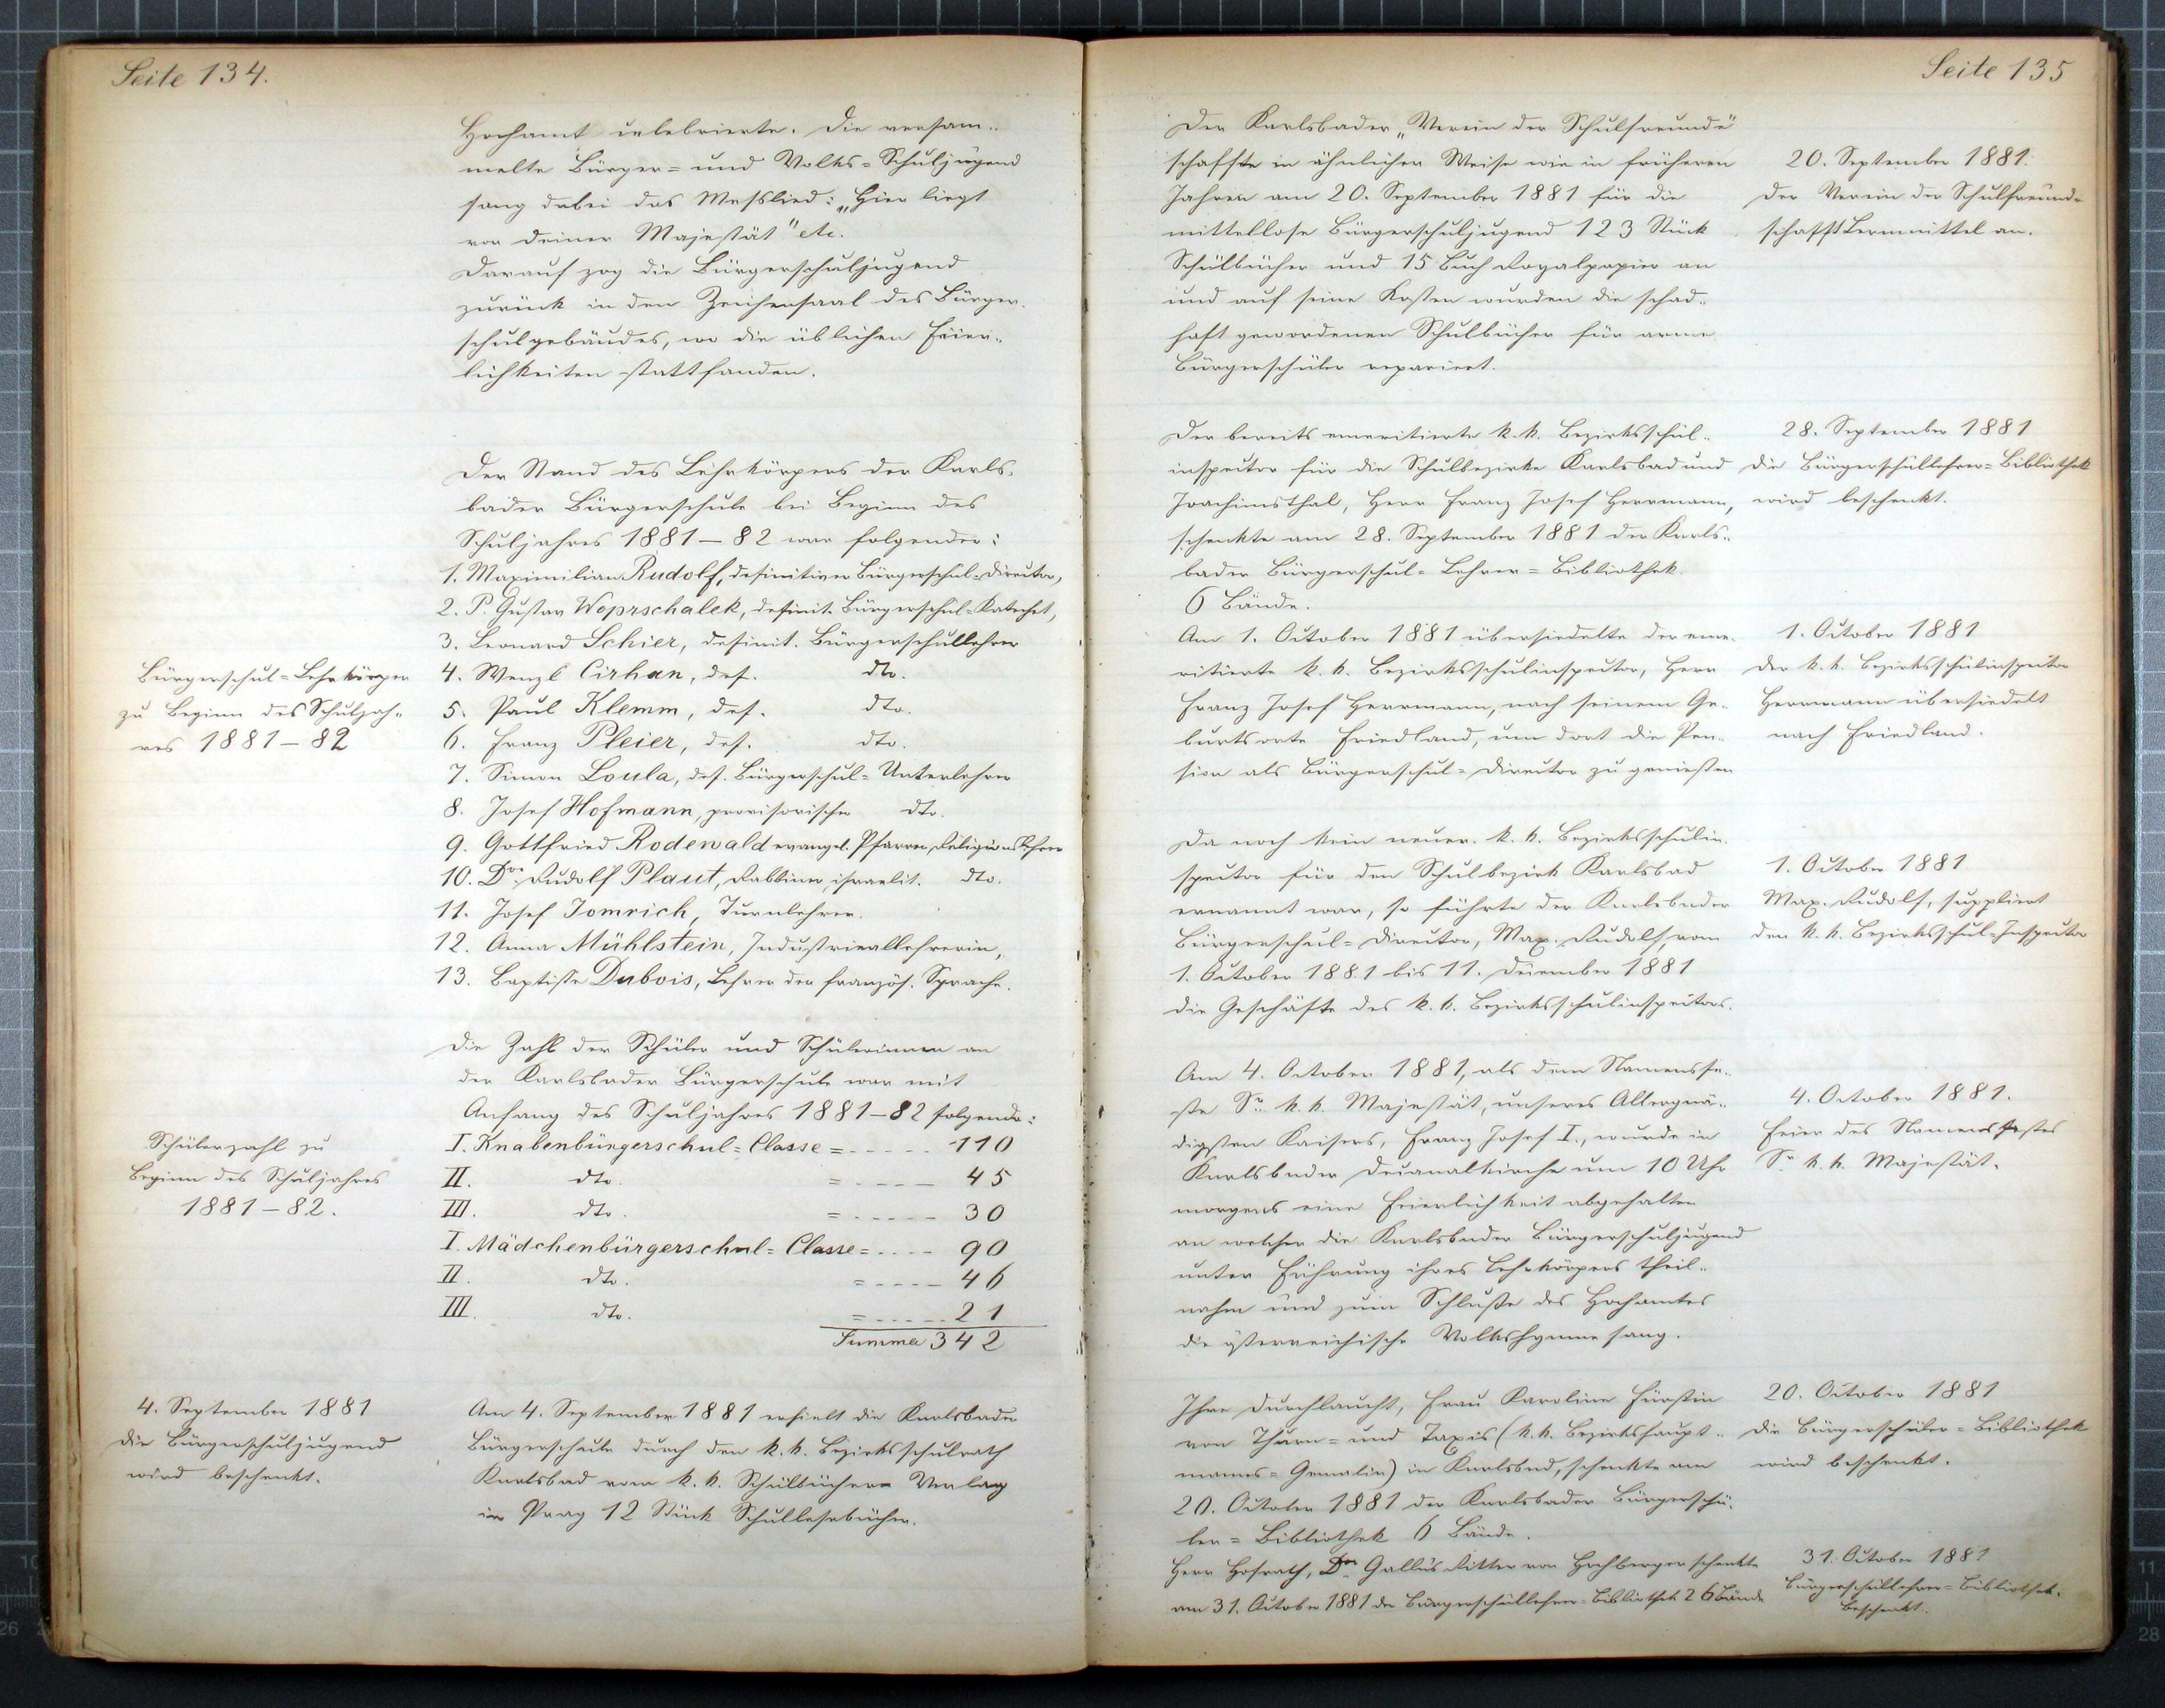 Seite 134.
Hochamt celebrierte. Die versam„
melte Bürger= und Volks=Schuljugend
sang dabei das Messlied: „Hier liegt
vor deiner Majestät" etc.
Darauf zog die Bürgerschuljugend
zurück in den Zeichensaal des Bürger„
schulgebäudes, wo die üblichen Feier„
lichkeiten stattfanden.
Der Stand des Lehrkörpers der Karls„
bader Bürgerschule bei Beginn des
Schuljahres 1881–82 war folgender:
1. Maximilian Rudolf, definitiver Bürgerschul=Director,
2. P. Gustav Woprschalek, definit. Bürgerschul=Katechet,
3. Leonard Schier, definit. Bürgerschullehrer
Bürgerschul=Lehrkörper
zu Beginn des Schuljah„
res 1881–82
4. Wenzl Cirhan, def. dto.
5. Paul Klemm, def. dto.
6. Franz Pleier, def. dto.
7. Simon Loula, def. Bürgerschul=Unterlehrer
8. Josef Hofmann, provisorischer dto.
9. Gottfried Rodewald evangel. Pfarrer, Religionslehrer
10. Dor Rudolf Plaut, Rabbiner, israelit. dto.
11. Josef Jomrich, Turnlehrer.
12. Anna Mühlstein, Industrieallehrerin,
13. Baptiste Dubois, Lehrer der französ. Sprache.
Die Zahl der Schüler und Schülerinnen an
der Karlsbader Bürgerschule war mit
Anfang des Schuljahres 1881–82 folgende:
Schülerzahl zu
Beginn des Schuljahres
1881–82.
I. Knabenbürgerschul=Classe = ----- 110
II. dto. = ----- 45
III. dto. = ----- 30
I. Mädchenbürgerschul=Classe = ---- 90
II. dto. = ----- 46
III. dto. = ----- 21
Summa 342
4. September 1881
Die Bürgerschuljugend
wird beschenkt.
Am 4. September 1881 erhielt die Karlsbader
Bürgerschule durch den k. k. Bezirksschulrath
Karlsbad vom k. k. Schulbücher= Verlag
in Prag 12 Stück Schullesebücher.
Seite 135
Der Karlsbader „Verein der Schulfreunde"
schaffte in ähnlicher Weise wie in früheren
Jahren am 20. September 1881 für die
mittellose Bürgerschuljugend 123 Stück
Schulbücher und 15 Buch Regalpapier an
und auf seine Kosten wurden die schad„
haft gewordenen Schulbücher für arme
Bürgerschüler repariert.
20. September 1881.
Der Verein der Schulfreunde
schafft Lernmittel an.
Der bereits emeritierte k. k. Bezirksschul„
inspector für die Schulbezirke Karlsbad und
Joachimsthal, Herr Franz Josef Herrmann,
schenkte am 28. September 1881 der Karls„
bader Bürgerschul=Lehrer=Bibliothek
6 Bände.
28. September 1881
Die Bürgerschullehrer=Bibliothek
wird beschenkt.
Am 1. October 1881 übersiedelte der eme„
ritierte k. k. Bezirksschulinspector, Herr
Franz Josef Herrmann, nach seinem Ge„
burtsorte Friedland, um dort die Pen„
sion als Bürgerschul=Director zu genießen
1. October 1881
Der k. k. Bezirksschulinspector
Herrmann übersiedelt
nach Friedland.
Da noch kein neuer k. k. Bezirksschulin„
spector für den Schulbezirk Karlsbad
ernannt war, so führte der Karlsbader
Bürgerschul=Director, Max. Rudolf, vom
1. October 1881 bis 11. December 1881
die Geschäfte des k. k. Bezirksschulinspectors.
1. October 1881
Max. Rudolf, suppliert
den k. k. Bezirksschul=Inspector
Am 4. October 1881, als dem Namensfe„
ste Sr. k. k. Majestät, unseres Allergnä„
digsten Kaisers, Franz Josef I., wurde in
Karlsbader Decanalkirche um 10 Uhr
morgens eine Feierlichkeit abgehalten
an welcher die Karlsbader Bürgerschuljugend
unter Führung ihres Lehrkörpers theil„
nahm und zum Schluße des Hochamtes
die österreichische Volkshymne sang.
4. October 1881.
Feier des Namensfestes
Sr. k. k. Majestät.
Ihre Durchlaucht, Frau Karoline Fürstin
von Thurn= und Taxis (k. k. Bezirkshaupt„
manns=Gemalin) in Karlsbad, schenkte am
20. October 1881 der Karlsbader Bürgerschü„
ler=Bibliothek 6 Bände.
20. October 1881
Die Bürgerschüler=Bibliothek
wird beschenkt.
Herr Hofrath, Dor Gallus Ritter von Hochberger schenkte
am 31. October 1881 der Bürgerschullehrer=Bibliothek 26 Bände
31. October 1881
Bürgerschullehrer=Bibliothek.
beschenkt.